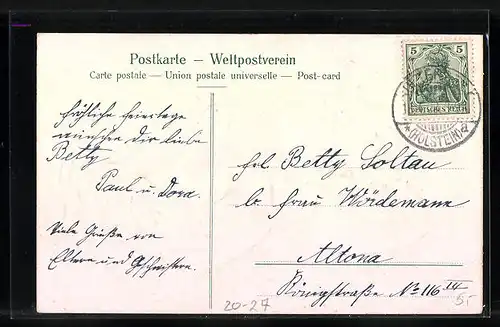 Postkarte – Weltpostverein
Carte postale — Union postale universelle — Post-card
5 5
DEUTSCHES REICH
(HOLSTEIN)
fröhliche Feiertage
wünschen dir liebe
Betty
Paul u. Dora.
Viele Grüße von
Eltern und Geschwistern.
Frl Betty Soltau
b. Frau Wördemann
Altona
Königstraße No 116 III
20-27
5.-